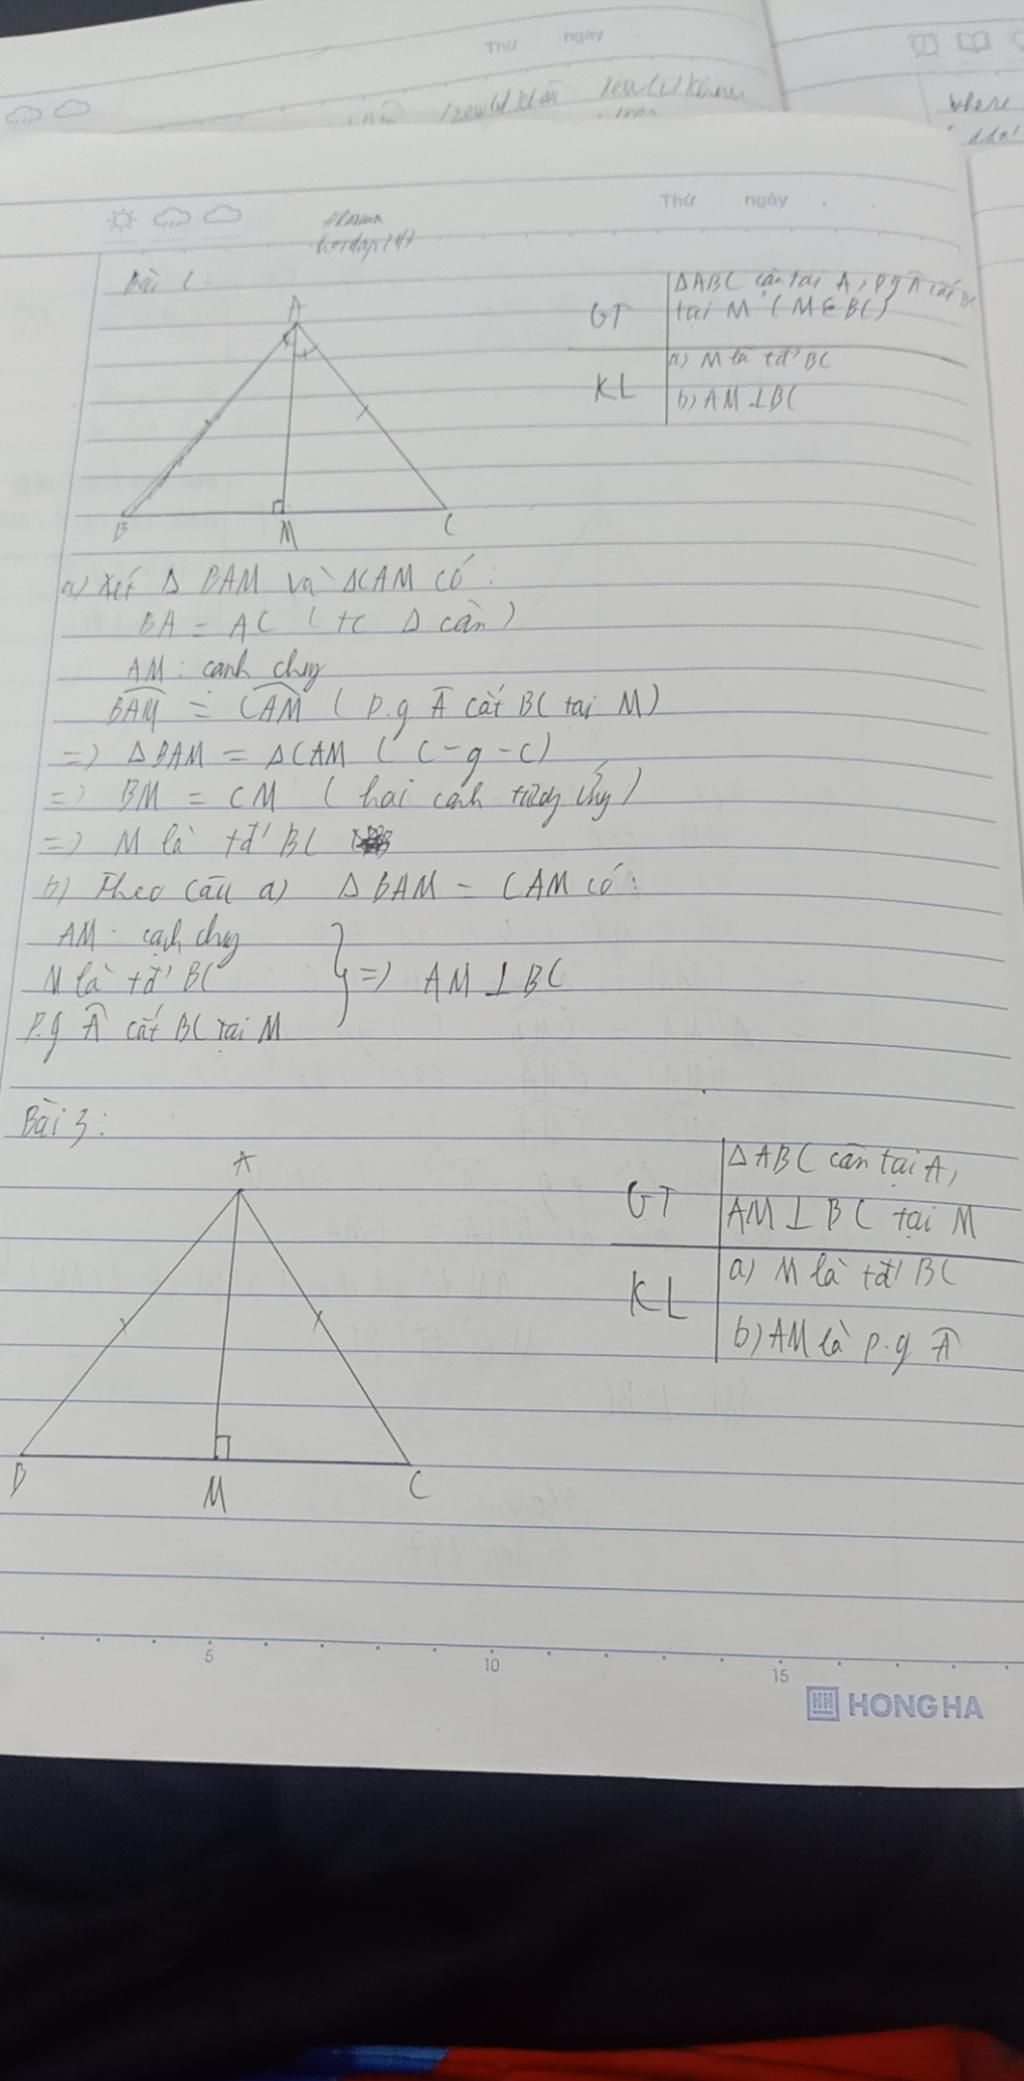 Thứ ngày
where
Thứ ngày
Bài 1:
A
B
M
C
GT
ΔABC cân tại A, P.g Â cắt BC
tại M (M∈BC)
KL
a) M là tđ' BC
b) AM⊥BC
a) Xét Δ BAM và ΔCAM có:
BA = AC (tc Δ cân)
AM: cạnh chung
BAM = CAM (p.g Â cắt BC tại M)
=> ΔBAM = ΔCAM (c-g-c)
=> BM = CM (hai cạnh tương ứng)
=> M là tđ' BC
b) Theo câu a) ΔBAM = CAM có:
AM: cạnh chung
M là tđ' BC
P.g Â cắt BC tại M
} => AM ⊥ BC
Bài 3:
A
B
M
C
GT
ΔABC cân tại A,
AM⊥BC tại M
KL
a) M là tđ' BC
b) AM là p.g Â
5 10 15
HONG HA